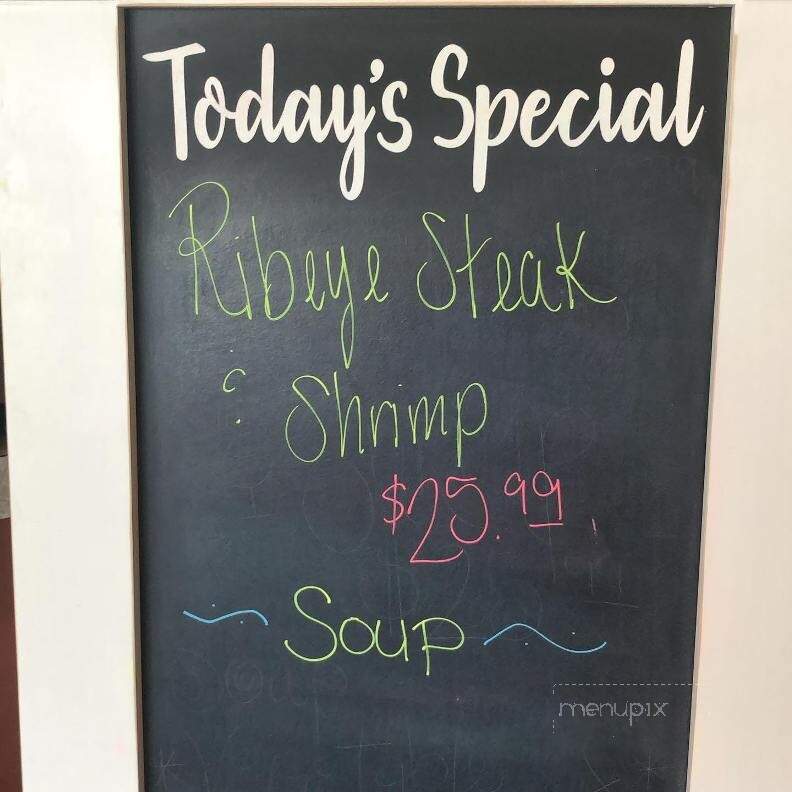 Today's Special
Ribeye Steak
& Shrimp
$25.99
Soup
menupix